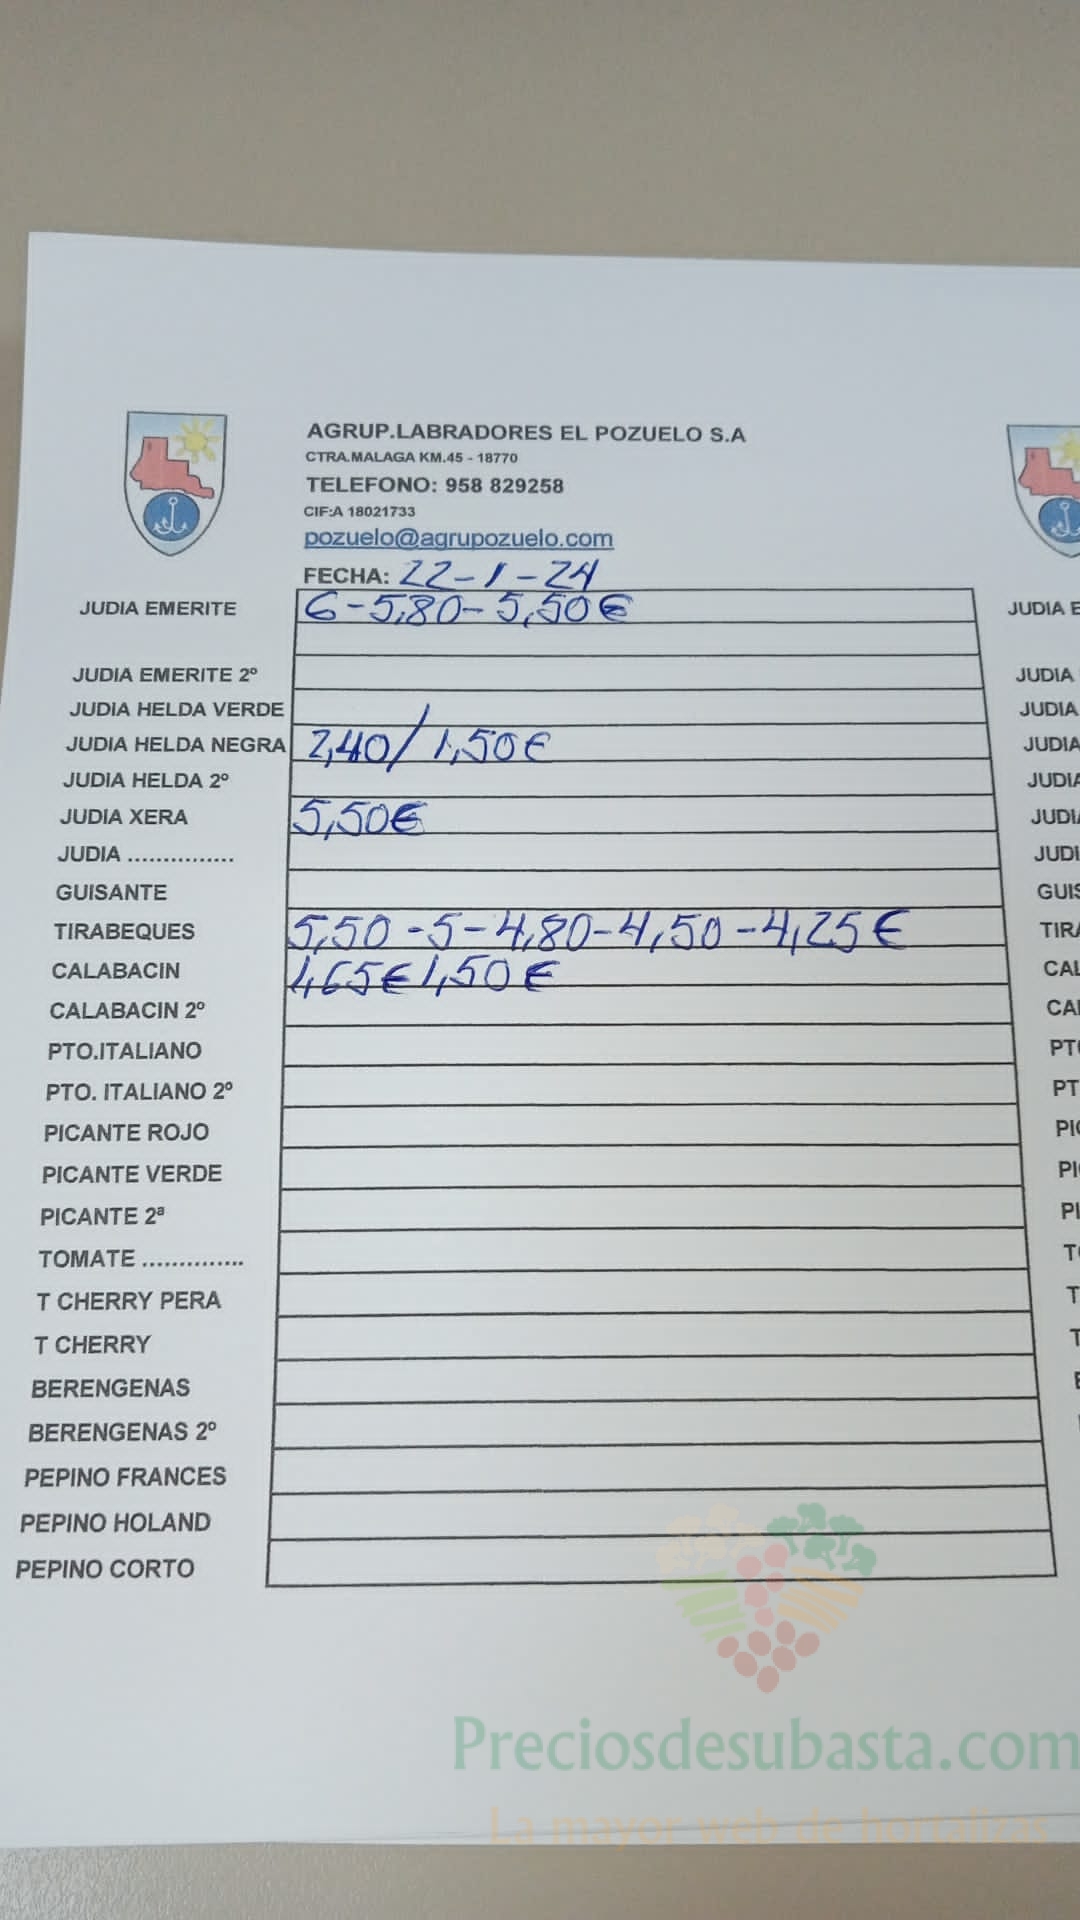 AGRUP.LABRADORES EL POZUELO S.A
CTRA.MALAGA KM.45 - 18770
TELEFONO: 958 829258
CIF:A 18021733
pozuelo@agrupozuelo.com
FECHA: 22-1-24
JUDIA EMERITE 6-5,80-5,50€
JUDIA EMERITE 2º
JUDIA HELDA VERDE
JUDIA HELDA NEGRA 2,40/1,50€
JUDIA HELDA 2º
JUDIA XERA 5,50€
JUDIA ...............
GUISANTE
TIRABEQUES 5,50-5-4,80-4,50-4,25€
CALABACIN 1,65€ 1,50€
CALABACIN 2º
PTO.ITALIANO
PTO. ITALIANO 2º
PICANTE ROJO
PICANTE VERDE
PICANTE 2ª
TOMATE ..............
T CHERRY PERA
T CHERRY
BERENGENAS
BERENGENAS 2º
PEPINO FRANCES
PEPINO HOLAND
PEPINO CORTO
JUDIA E
JUDIA
JUDIA
JUDIA
JUDIA
JUDIA
JUDI
GUIS
TIRA
CAL
CA
PTO
PT
PIC
PI
PI
TO
T
T
Preciosdesubasta.com
La mayor web de hortalizas